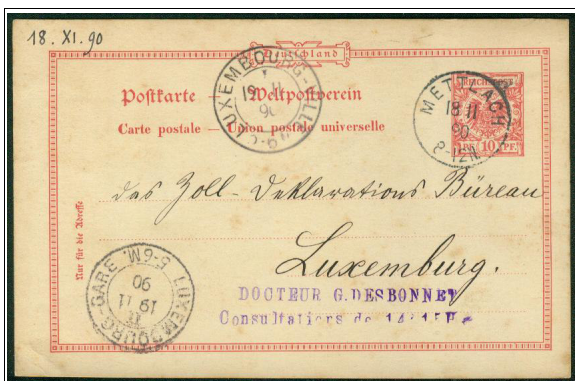 18. XI. 90
Deutschland
Postkarte – Weltpostverein
Carte postale – Union postale universelle
LUXEMBOURG-VILLE
90
METTLACH
18 11
90
8-12N.
10 PF.
Nur für die Adresse
das Zoll-Deklarations Büreau
Luxemburg.
LUXEMBOURG-GARE 5-6M.
19 11
90
DOCTEUR G. DESBONNET
Consultations de 14-15H